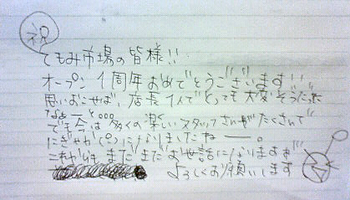 祝
てもみ市場の皆様!!
オープン1周年おめでとうございます!!
思いおこせば、店長1人でとっても大変そうだった
でも今は多くの楽しいスタッフさんがたくさんで
にぎやか(?)になりましたねー。
これからもまだまだお世話になりますが
よろしくお願いします